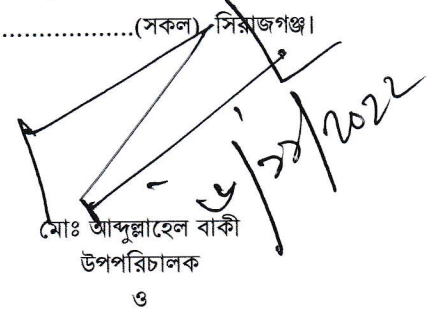 ....................(সকল), সিরাজগঞ্জ।
মোঃ আব্দুল্লাহেল বাকী
উপপরিচালক
ও